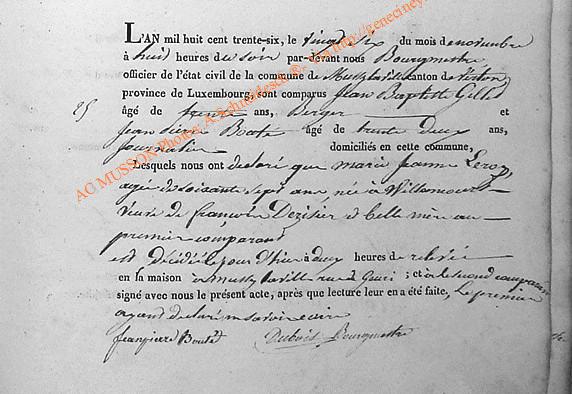 L'AN mil huit cent trente-six, le vingt six du mois de novembre
à huit heures du soir par-devant nous Bourgmestre
officier de l'état civil de la commune de Mussy la ville canton de Virton
province de Luxembourg, sont comparus Jean Baptiste Gillet
25 âgé de trente ans, Berger et
Jean pierre Bouté âgé de trente deux ans,
Journalier domiciliés en cette commune,
Lesquels nous ont declaré que marie Jeanne Leroy
agée de soixante sept ans, né à Willancourt
veuve de françois Dezisier et belle mère au
premier comparant
est décédée le jour d'hier à deux heures de relevée
en la maison à mussy la ville rue ; et à le second comparant
signé avec nous le présent acte, après que lecture leur en a été faite, Le premier
ayant declaré ne savoir ecrire
Jeanpierre Bouté Dubois Bourgmestre
AC MUSSON Photos: A. Schneidesch. © http://geneciney